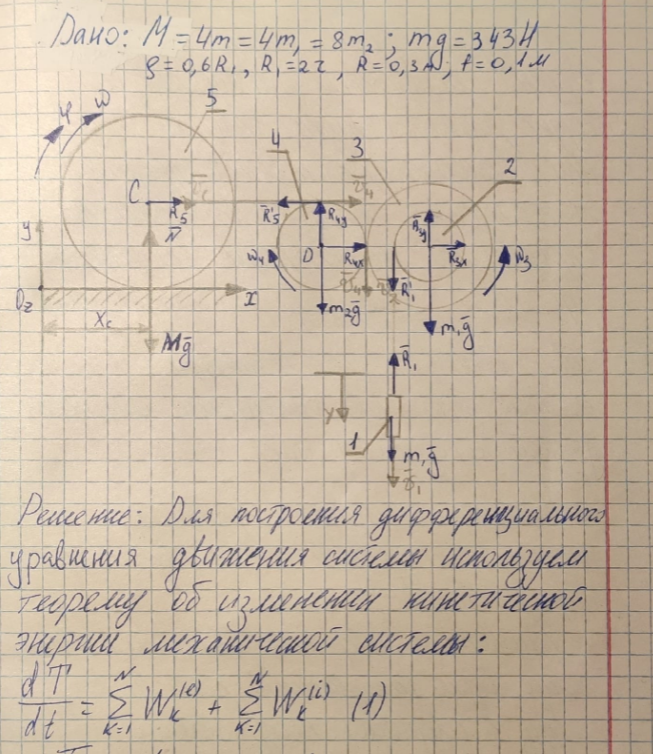 Дано: M = 4m = 4m₁ = 8m₂ ; mg = 343 Н
ρ = 0,6R₁, R₁ = 2r, R = 0,3м, f = 0,1м
φ ω 5
4 3 2
C R̄₅ R̄'₅ R₄y R̄₃y
N̄ y ω₄ D R₄x R̄'₁ R̄₃x ω₃
O₂ x m₂ḡ m₁ḡ
X_c
Mḡ R̄₁
y
1 m₁ḡ
v̄₁
Решение: Для построения дифференциального
уравнения движения системы используем
теорему об изменении кинетической
энергии механической системы:
dT/dt = ∑_{k=1}^{N} W_k^{(e)} + ∑_{k=1}^{N} W_k^{(i)} (1)